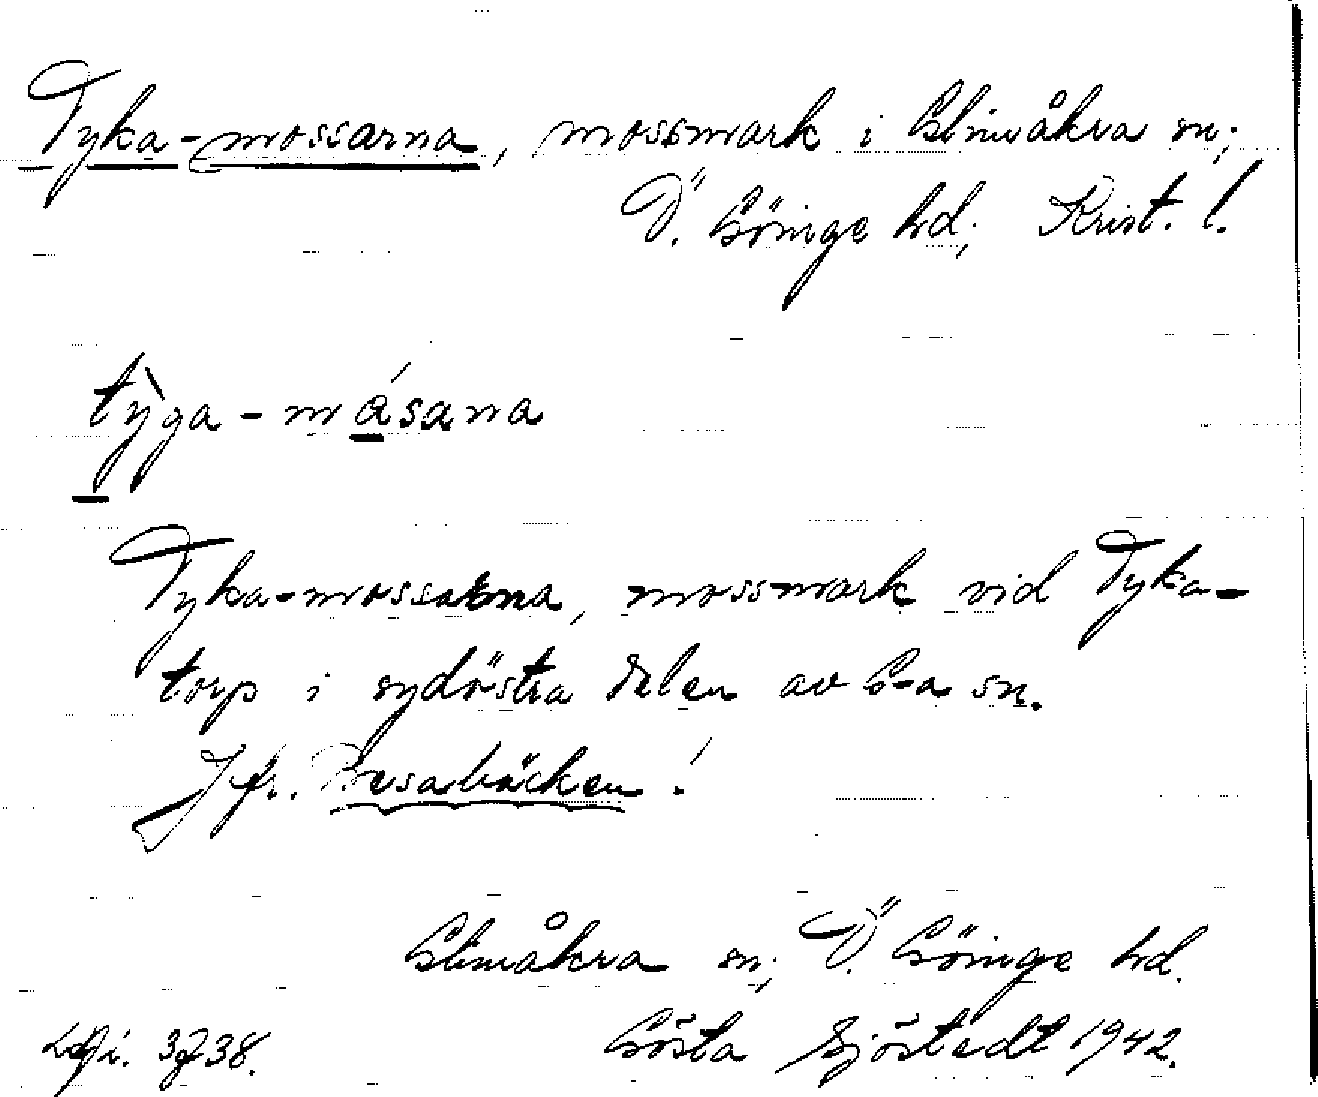 Tyka-mossarna, mossmark i Glimåkra sn;
Ö. Göinge hd; Krist. l.
tỳga-másana
Tyka-mossarna, mossmark vid Tyka-
torp i sydöstra delen av G-a sn.
Jfr. Bosabäcken!
Glimåkra sn; Ö. Göinge hd.
Gösta Sjöstedt 1942.